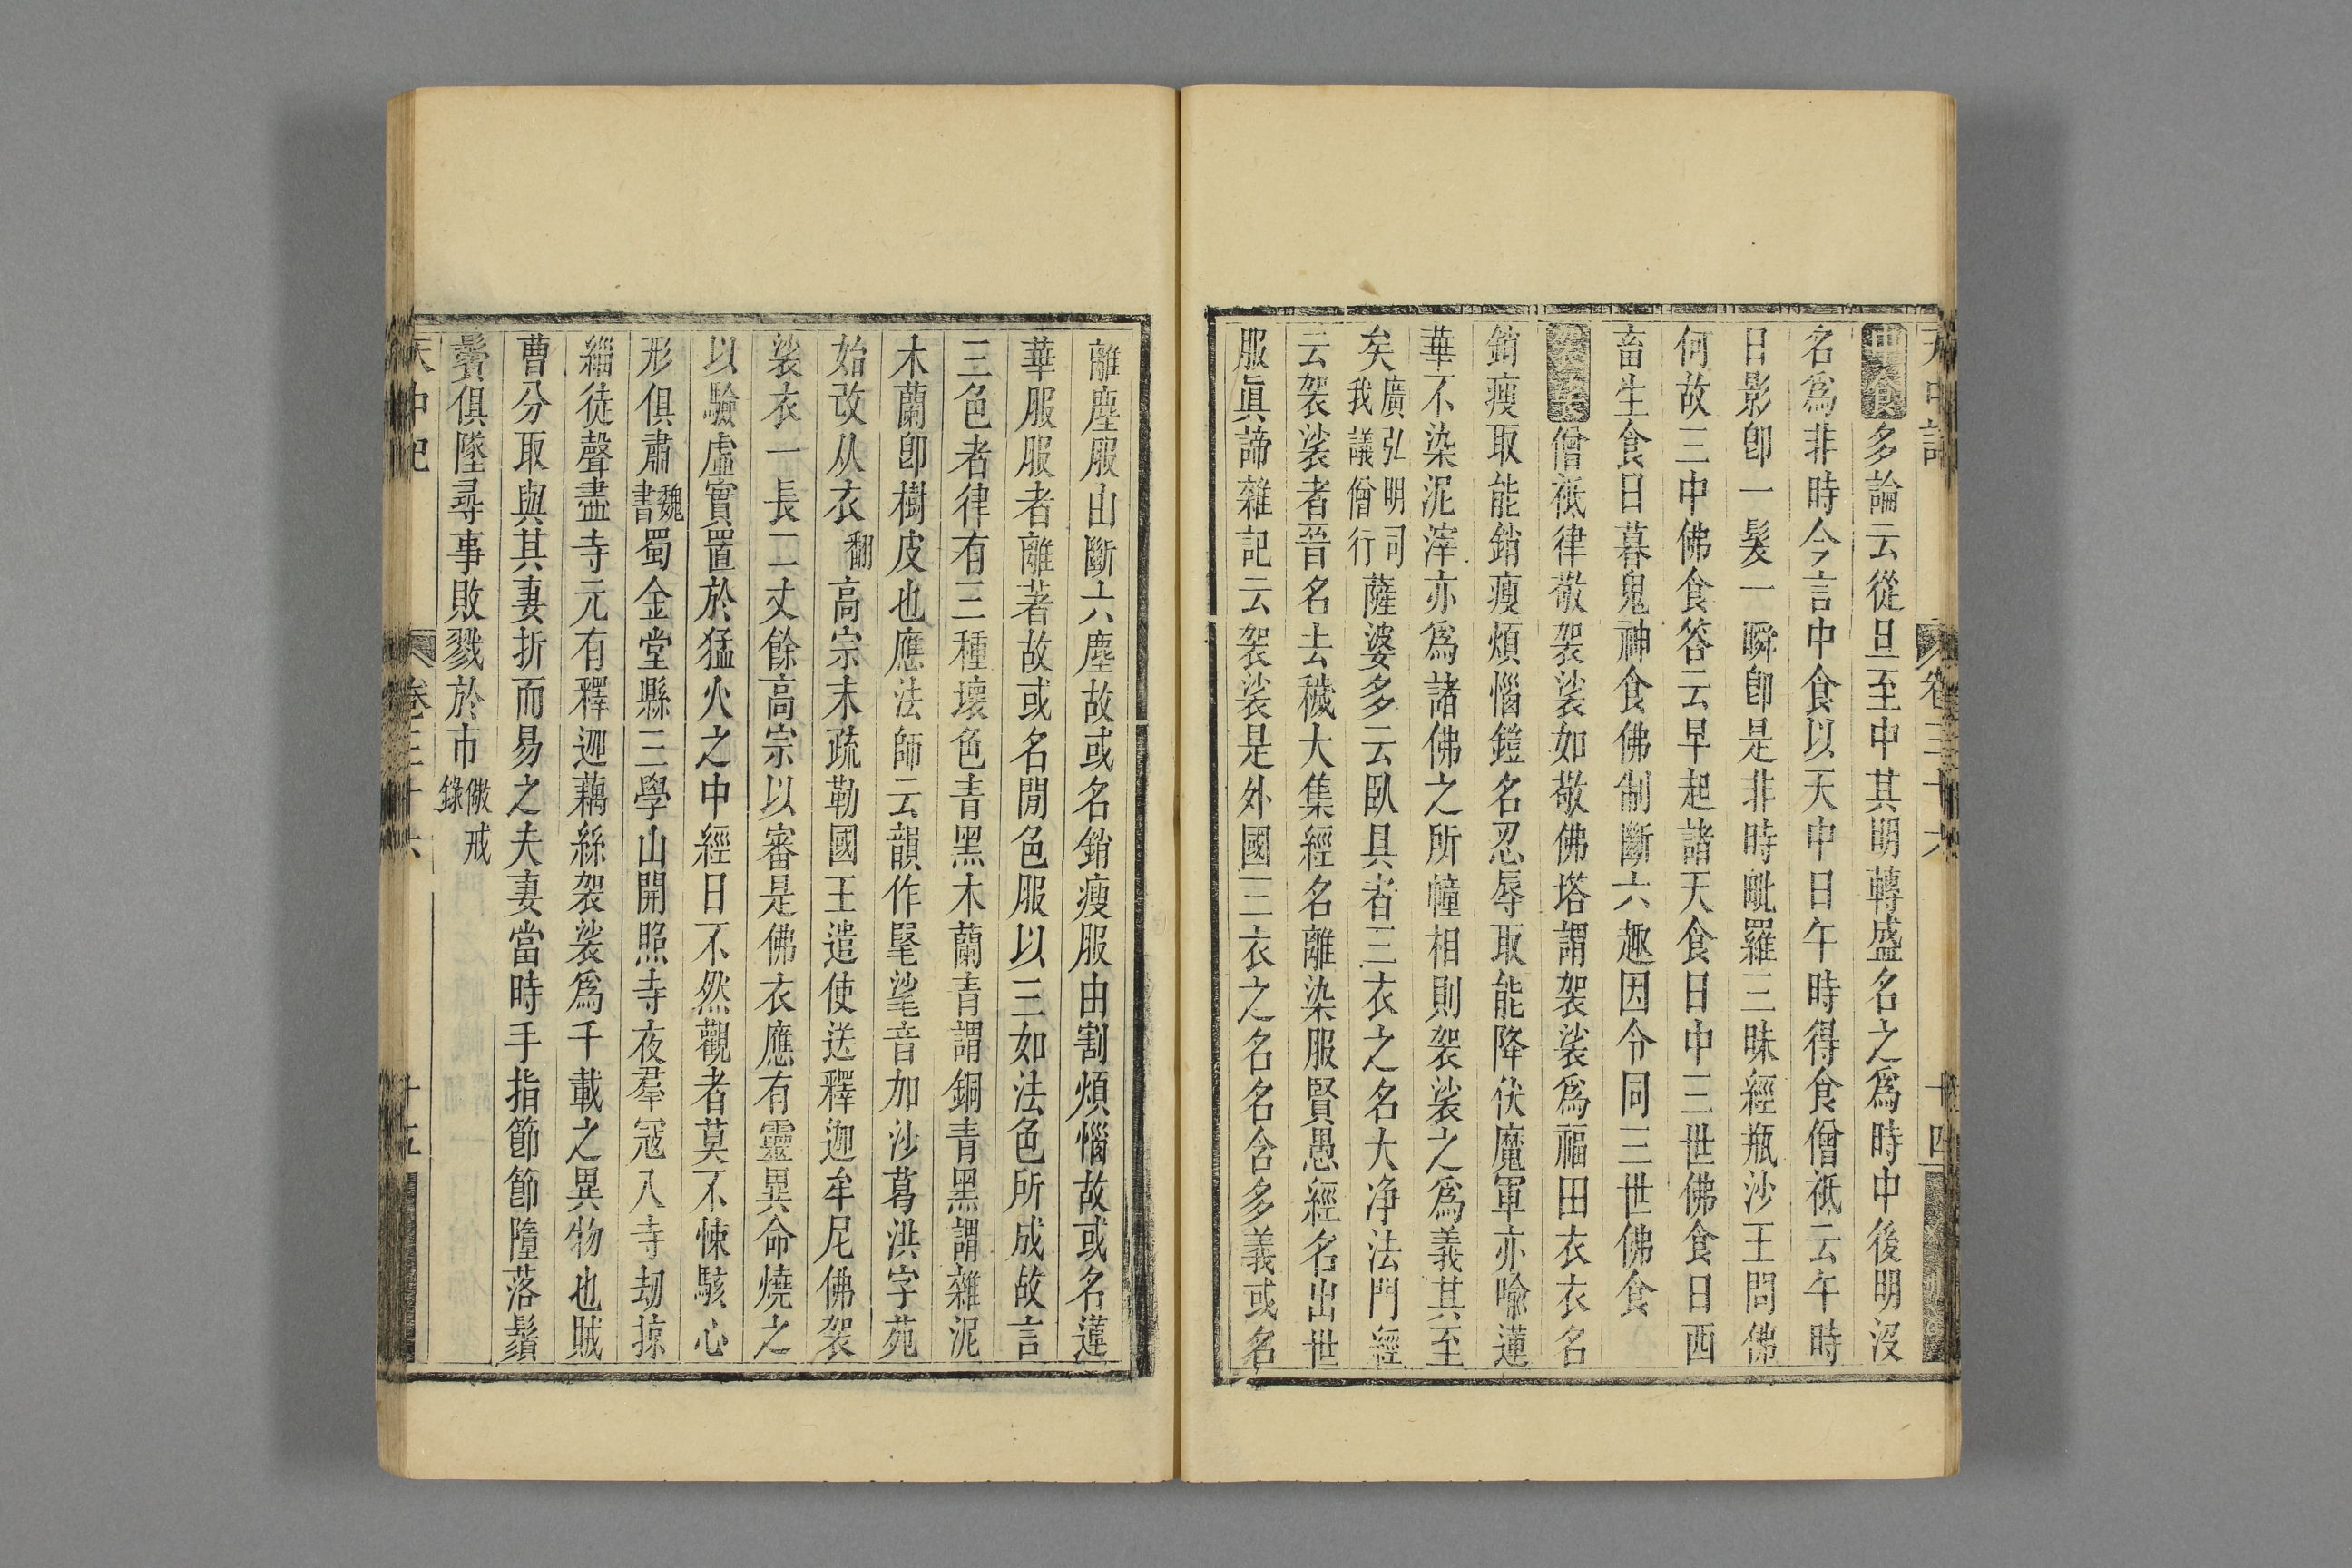 天中記 卷三十六 十四
中食多論云從旦至中其明轉盛名之爲時中後明沒
名爲非時今言中食以天中日午時得食僧祇云午時
日影卽一髮一瞬卽是非時毗羅三昧經瓶沙王問佛
何故三中佛食答云早起諸天食日中三世佛食日西
畜生食日暮鬼神食佛制斷六趣因令同三世佛食
袈裟僧祇律敬袈裟如敬佛塔謂袈裟爲福田衣衣名
銷瘦取能銷瘦煩惱鎧名忍辱取能降伏魔軍亦喻蓮
華不染泥滓亦爲諸佛之所幢相則袈裟之爲義其至
矣廣弘明司我議僧行薩婆多云臥具者三衣之名大净法門經
云袈裟者晉名去穢大集經名離染服賢愚經名出世
服眞諦雜記云袈裟是外國三衣之名名含多義或名
離塵服由斷六塵故或名銷瘦服由割煩惱故或名蓮
華服服者離著故或名閒色服以三如法色所成故言
三色者律有三種壞色青黑木蘭青謂銅青黑謂雜泥
木蘭卽樹皮也應法師云韻作㲚㲚音加沙葛洪字苑
始改从衣翻高宗末疏勒國王遣使送釋迦牟尼佛袈
裟衣一長二丈餘高宗以審是佛衣應有靈異命燒之
以驗虛實置於猛火之中經日不然觀者莫不悚駭心
形俱肅魏書蜀金堂縣三學山開照寺夜羣寇入寺刼掠
緇徒聲盡寺元有釋迦藕絲袈裟爲千載之異物也賊
曹分取與其妻折而易之夫妻當時手指節節隨落鬚
鬢俱墜尋事敗戮於市儆戒錄
天中記 卷三十六 十五